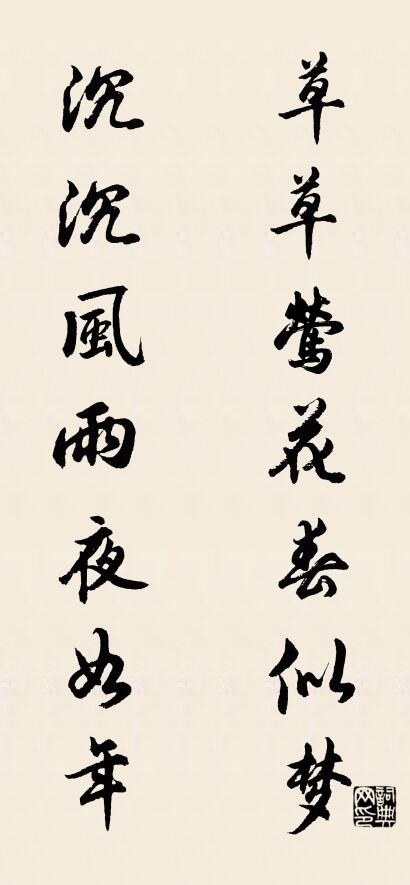 草草莺花春似梦
沉沉風雨夜如年
詞典网印